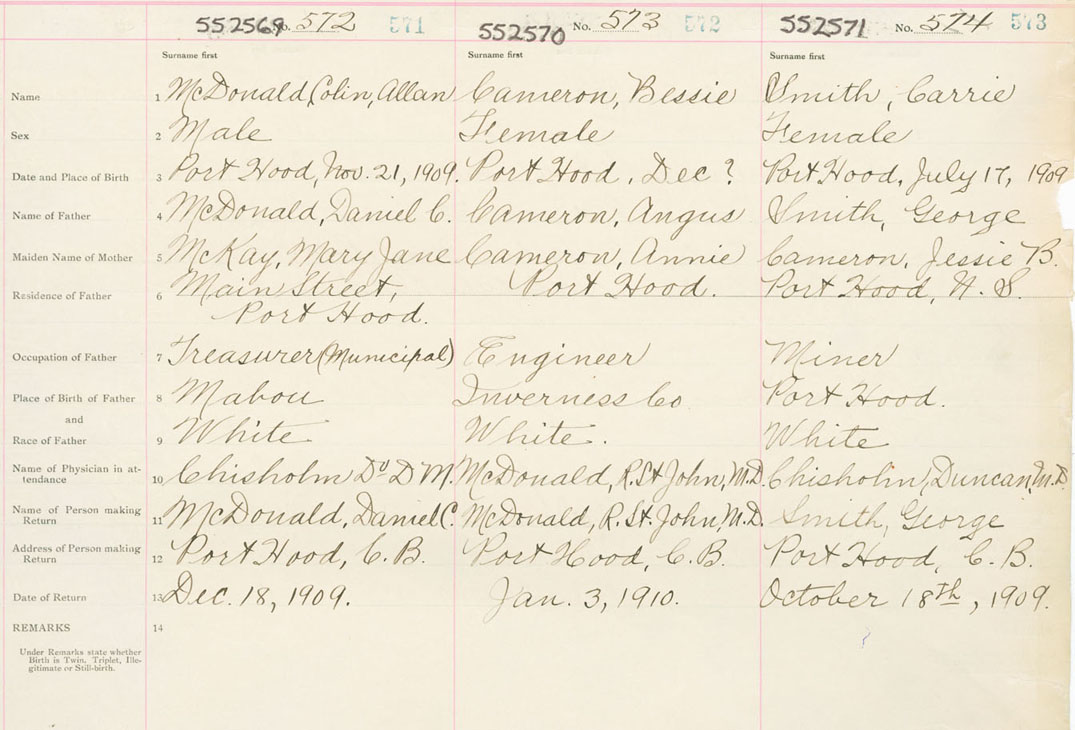 552569 No. 572 571 552570 No. 573 572 552571 No. 574 573
Surname first Surname first Surname first
Name 1 McDonald, Colin, Allan Cameron, Bessie Smith, Carrie
Sex 2 Male Female Female
Date and Place of Birth 3 Port Hood, Nov. 21, 1909. Port Hood, Dec ? Port Hood, July 17, 1909
Name of Father 4 McDonald, Daniel C. Cameron, Angus Smith, George
Maiden Name of Mother 5 McKay, Mary Jane Cameron, Annie Cameron, Jessie B.
Residence of Father 6 Main Street, Port Hood. Port Hood, N. S.
Port Hood.
Occupation of Father 7 Treasurer (Municipal) Engineer Miner
Place of Birth of Father 8 Mabou Inverness Co Port Hood.
and
Race of Father 9 White White. White
Name of Physician in at-
tendance 10 Chisholm Dr D M. McDonald, R. St John, M.D. Chisholm, Duncan, M.D.
Name of Person making
Return 11 McDonald, Daniel C. McDonald, R. St. John, M.D. Smith, George
Address of Person making
Return 12 Port Hood, C. B. Port Hood, C. B. Port Hood, C. B.
Date of Return 13 Dec. 18, 1909. Jan. 3, 1910. October 18th, 1909.
REMARKS 14
Under Remarks state whether
Birth is Twin, Triplet, Ille-
gitimate or Still-birth.